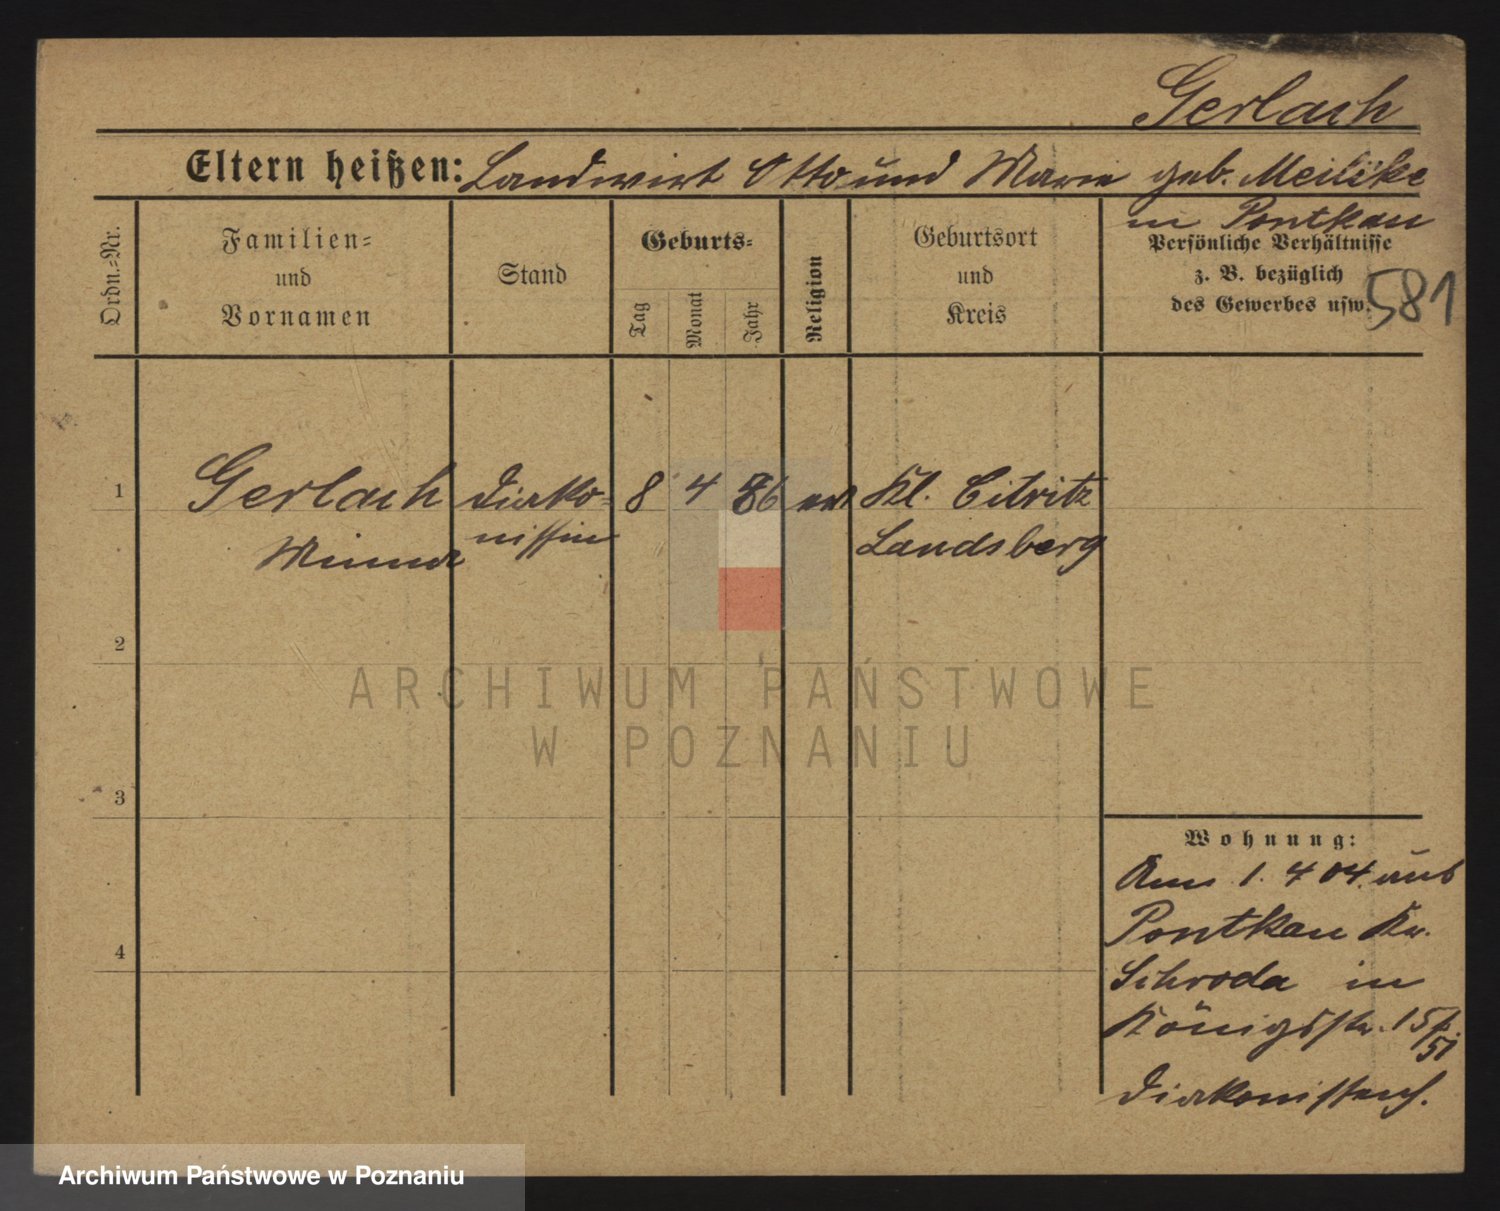 Gerlach
Eltern heißen: Landwirt Otto und Marie geb. Meilike
in Pontkau
Ordn.-Nr.
Familien-
und
Vornamen
Stand
Geburts-
Tag
Monat
Jahr
Religion
Geburtsort
und
Kreis
Persönliche Verhältnisse
z. B. bezüglich
des Gewerbes usw.
581
1 Gerlach Diako- 8 4 86 ev Kl. Citritz
Minna nissin Landsberg
2
3
4
Wohnung:
Am 1. 4 04. aus
Pontkau Kr.
Schroda in
Königsstr. 15/.
51
Diakonissenh.
ARCHIWUM PAŃSTWOWE
W POZNANIU
Archiwum Państwowe w Poznaniu